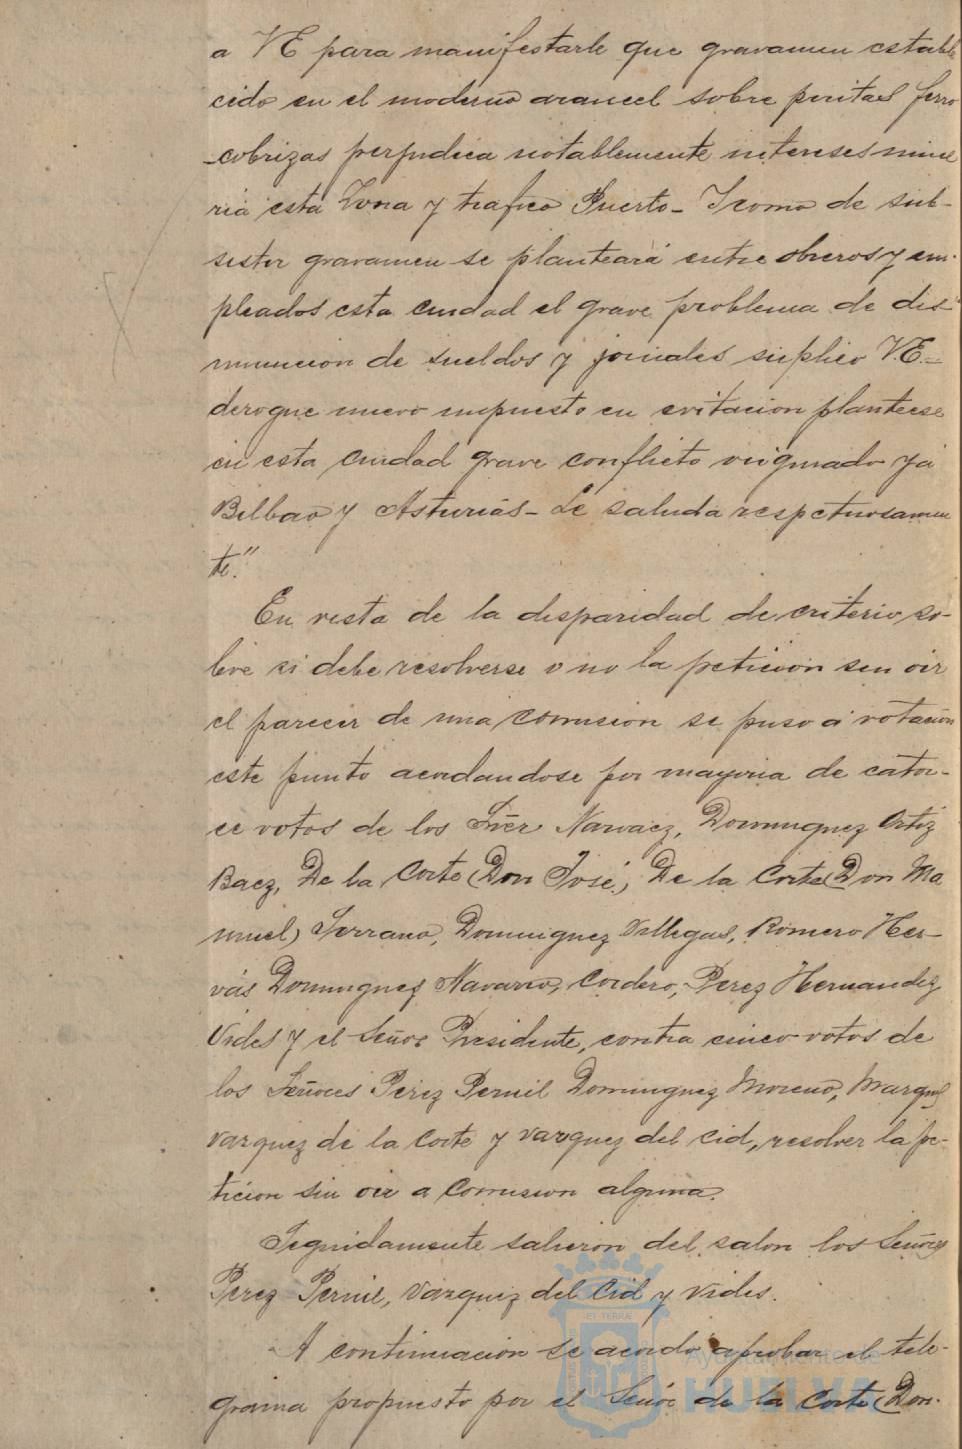 a VE para manifestarle que gravamen estable
cido en el moderno arancel sobre piritas ferro
-cobrizas perjudica notablemente intereses mine
ria esta Zona y trafico Puerto - Y como de sub-
sistir gravamen se planteará entre obreros y em-
pleados esta ciudad el grave problema de dis
minucion de sueldos y jornales suplico VE-
derogue nuevo impuesto en evitacion plantease
en esta ciudad grave conflicto originado ya
Bilbao y Asturias - Le saluda respetuosamen
te."
En vista de la disparidad de criterio so-
bre si debe resolverse o no la peticion sin oir
el parecer de una comision se puso á votacion
este punto acordandose por mayoria de cator-
ce votos de los Sñrs Narvaez, Dominguez Ortiz
Baez, De la Corte (Don José), De la Corte (Don Ma
nuel) Serrano, Dominguez Villegas, Romero Her-
vás Dominguez Navarro, Cordero, Perez Hernandez
Vides y el Señor Presidente, contra cinco votos de
los Señores Perez Pernil Dominguez Moreno, Marquez
Vazquez de la Corte y Vazquez del Cid, resolver la pe-
ticion sin oir a Comision alguna.
Seguidamente salieron del salon los Señores
Perez Pernil, Vazquez del Cid y Vides.
A continuacion se acordo aprobar el tele-
grama propuesto por el Señor de la Corte (Don.
Ayuntamiento de
HUELVA